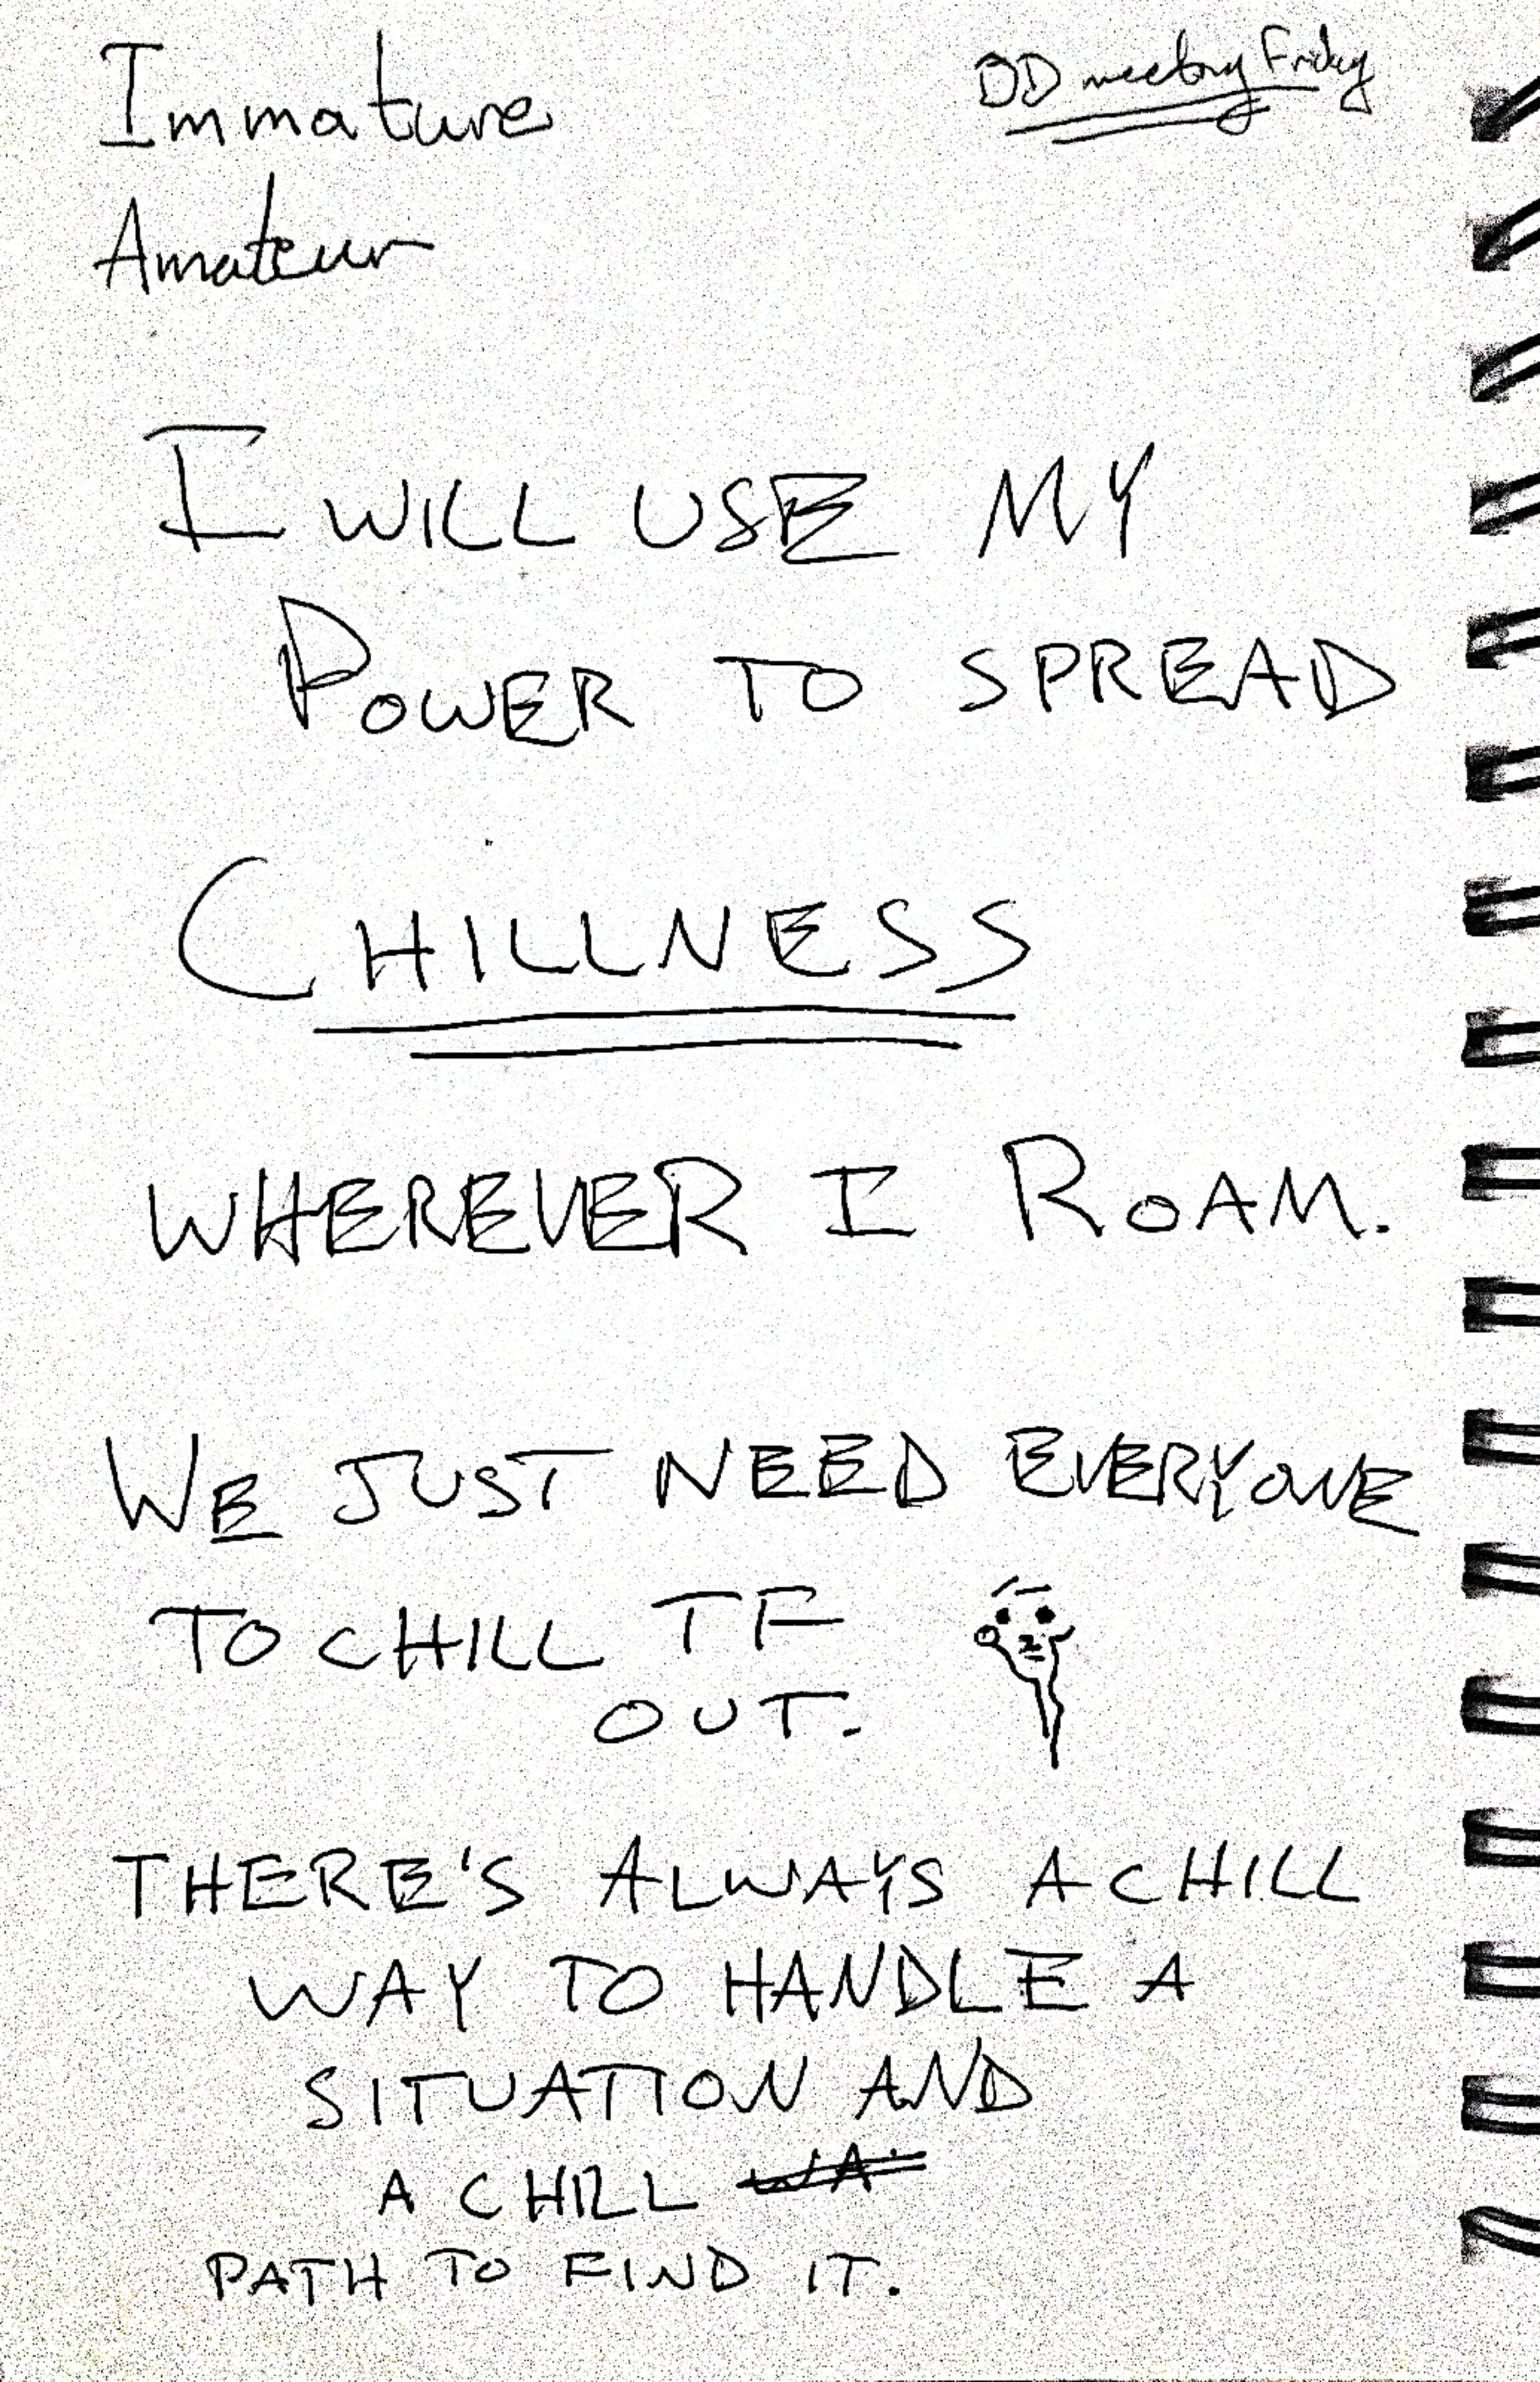 Immature
Amateur
meeting Friday
I WILL USE MY
POWER TO SPREAD
CHILLNESS
WHEREVER I ROAM.
WE JUST NEED EVERYONE
TO CHILL TF
OUT.
THERE'S ALWAYS A CHILL
WAY TO HANDLE A
SITUATION AND
A CHILL
PATH TO FIND IT.